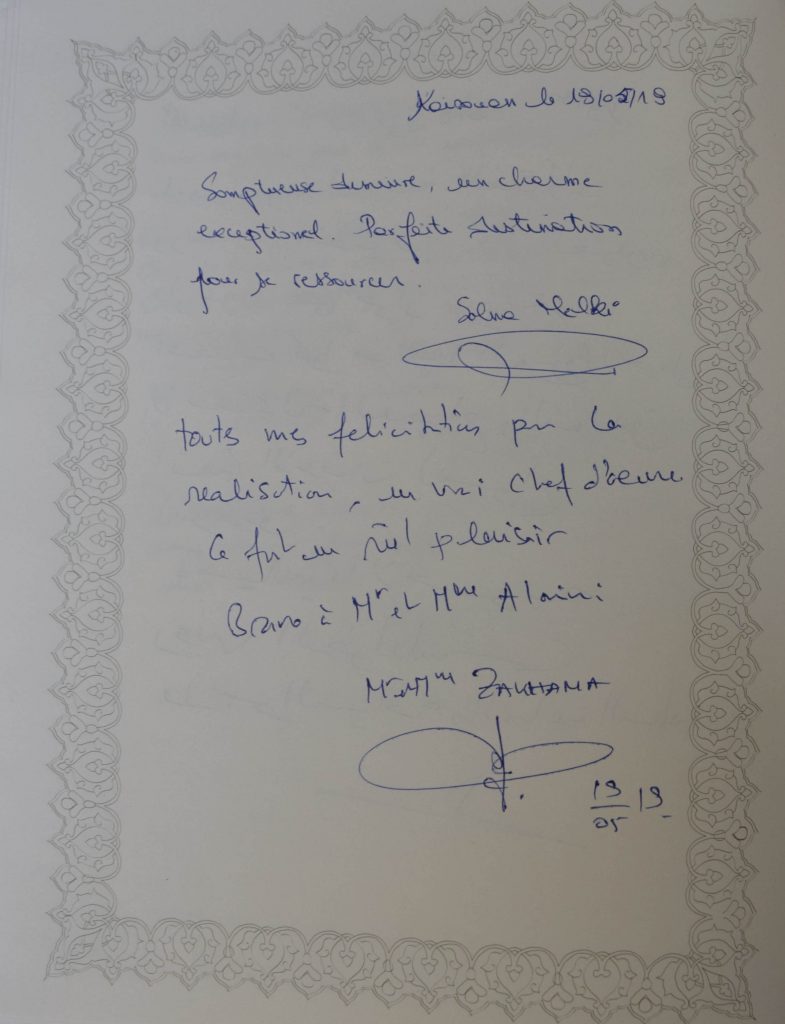 Kairouan le 19/05/19
Somptueuse demeure, un charme
exceptionel. Parfaite destination
pour se ressourcer.
Solma Malki
touts mes felicitations pour la
realisation, un vrai chef d'oeuvre
Ce fut un réel plaisir
Bravo à Mr et Mme Alaini
Mr et Mme ZAKHAMA
19/05 19